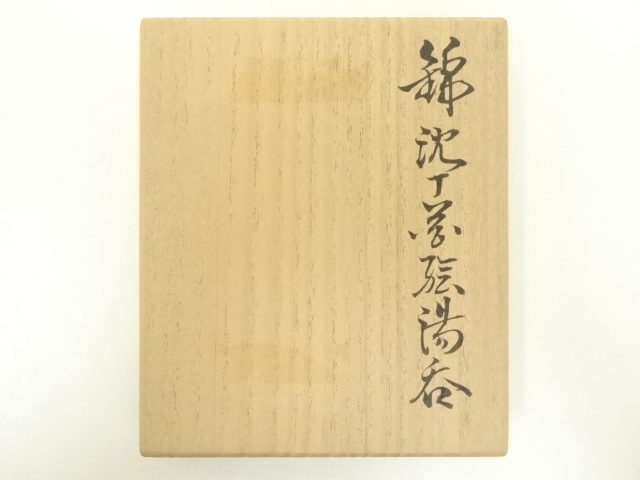 錦沈丁花絵湯呑